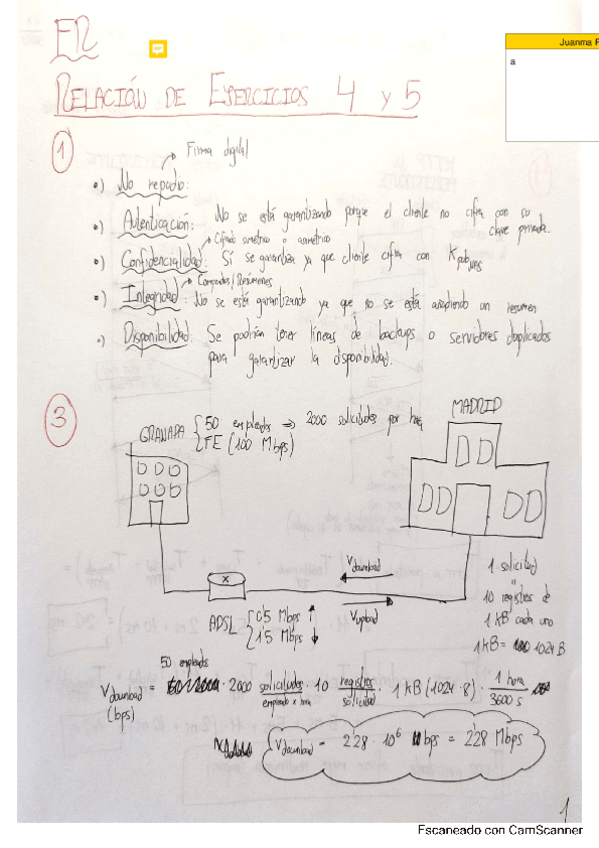 Juanma F
a
FR
RELACIÓN DE EJERCICIOS 4 y 5
1
Firma digital
•) No repudio:
•) Autenticación: No se está garantizando porque el cliente no cifra con su
clave privada.
Cifrado simétrico o asimétrico
•) Confidencialidad: Sí se garantiza ya que cliente cifra con Kpub
Compendios/Resúmenes
•) Integridad: No se está garantizando ya que no se está añadiendo un resumen
•) Disponibilidad: Se podrían tener líneas de backups o servidores duplicados
para garantizar la disponibilidad.
3
GRANADA { 50 empleados ⇒ 2000 solicitudes por hora
FE (100 Mbps)
MADRID
Vdownload
Vupload
x
ADSL { 0'5 Mbps ↑
1'5 Mbps ↓
1 solicitud
=
10 registros de
1 KB cada uno
1 KB = 1024 B
50 empleados
Vdownload = · 2000 solicitudes / empleado x hora · 10 registros / solicitud · 1 KB (1024 · 8) · 1 hora / 3600 s
(bps)
Vdownload = 2'28 · 10⁶ bps = 2'28 Mbps
1
Escaneado con CamScanner